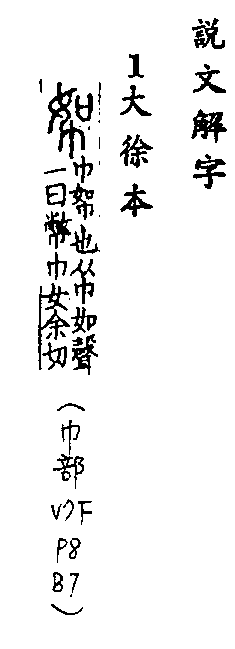 説文解字
1大徐本
帤
巾帤也从巾如聲
一曰幣巾女余切
（巾部
V7下
P8
B7）